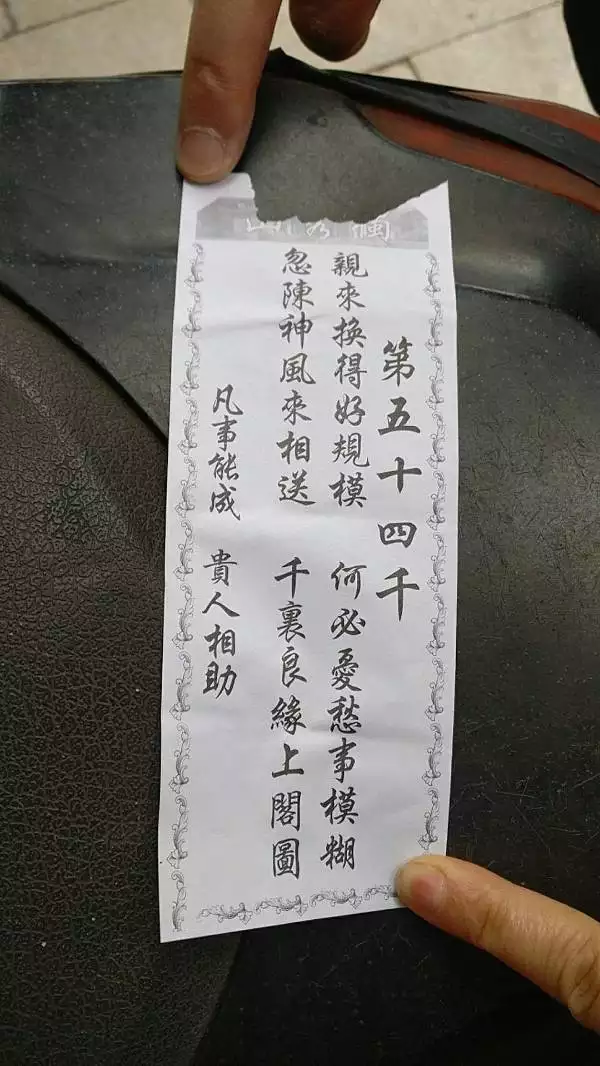 第五十四千
親來換得好規模 何必憂愁事模糊
忽陳神風來相送 千裏良緣上閣圖
凡事能成 貴人相助